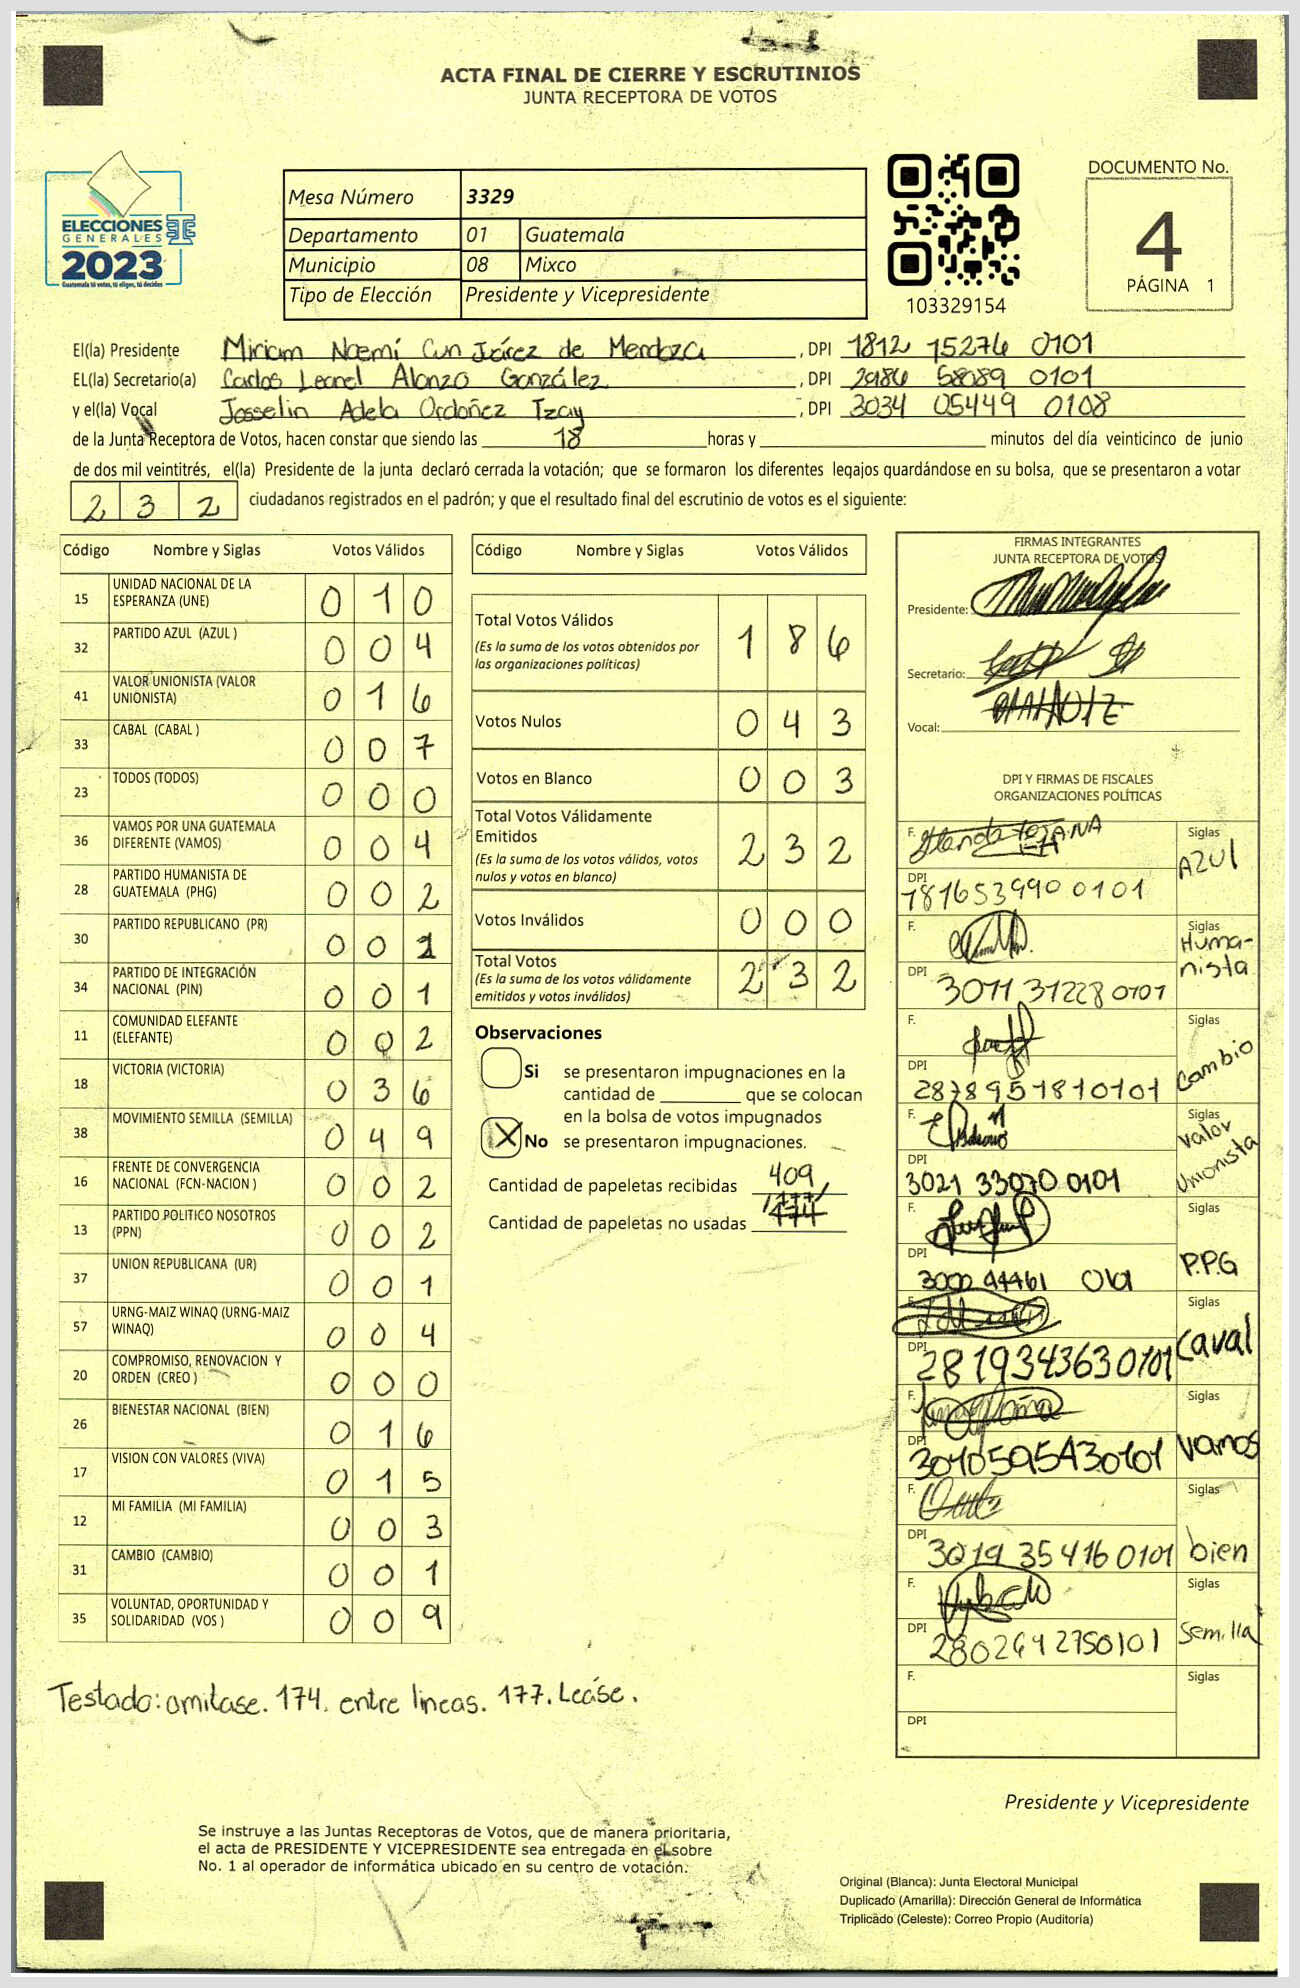 ACTA FINAL DE CIERRE Y ESCRUTINIOS
JUNTA RECEPTORA DE VOTOS
ELECCIONES
GENERALES
2023
Guatemala tú votas, tú eliges, tú decides
Mesa Número 3329
Departamento 01 Guatemala
Municipio 08 Mixco
Tipo de Elección Presidente y Vicepresidente
103329154
DOCUMENTO No.
4
PÁGINA 1
El(la) Presidente Miriam Noemí Cun Juárez de Mendoza, DPI 1812 75276 0101
EL(la) Secretario(a) Carlos Leonel Alonzo González, DPI 2986 58089 0101
y el(la) Vocal Josselin Adela Ordoñez Tzay, DPI 3034 05449 0108
de la Junta Receptora de Votos, hacen constar que siendo las 18 horas y minutos del día veinticinco de junio
de dos mil veintitrés, el(la) Presidente de la junta declaró cerrada la votación; que se formaron los diferentes legajos guardándose en su bolsa, que se presentaron a votar
232 ciudadanos registrados en el padrón; y que el resultado final del escrutinio de votos es el siguiente:
Código Nombre y Siglas Votos Válidos
15 UNIDAD NACIONAL DE LA ESPERANZA (UNE) 010
32 PARTIDO AZUL (AZUL ) 004
41 VALOR UNIONISTA (VALOR UNIONISTA) 016
33 CABAL (CABAL ) 007
23 TODOS (TODOS) 000
36 VAMOS POR UNA GUATEMALA DIFERENTE (VAMOS) 004
28 PARTIDO HUMANISTA DE GUATEMALA (PHG) 002
30 PARTIDO REPUBLICANO (PR) 002
34 PARTIDO DE INTEGRACIÓN NACIONAL (PIN) 001
11 COMUNIDAD ELEFANTE (ELEFANTE) 002
18 VICTORIA (VICTORIA) 036
38 MOVIMIENTO SEMILLA (SEMILLA) 049
16 FRENTE DE CONVERGENCIA NACIONAL (FCN-NACION ) 002
13 PARTIDO POLITICO NOSOTROS (PPN) 002
37 UNION REPUBLICANA (UR) 001
57 URNG-MAIZ WINAQ (URNG-MAIZ WINAQ) 004
20 COMPROMISO, RENOVACION Y ORDEN (CREO ) 000
26 BIENESTAR NACIONAL (BIEN) 016
17 VISION CON VALORES (VIVA) 015
12 MI FAMILIA (MI FAMILIA) 003
31 CAMBIO (CAMBIO) 001
35 VOLUNTAD, OPORTUNIDAD Y SOLIDARIDAD (VOS ) 009
Código Nombre y Siglas Votos Válidos
Total Votos Válidos 186
(Es la suma de los votos obtenidos por
las organizaciones políticas)
Votos Nulos 043
Votos en Blanco 003
Total Votos Válidamente
Emitidos 232
(Es la suma de los votos válidos, votos
nulos y votos en blanco)
Votos Inválidos 000
Total Votos 232
(Es la suma de los votos válidamente
emitidos y votos inválidos)
Observaciones
Si se presentaron impugnaciones en la
cantidad de que se colocan
en la bolsa de votos impugnados
X No se presentaron impugnaciones.
Cantidad de papeletas recibidas 409
177
Cantidad de papeletas no usadas 174
FIRMAS INTEGRANTES
JUNTA RECEPTORA DE VOTOS
Presidente:
Secretario:
Vocal:
DPI Y FIRMAS DE FISCALES
ORGANIZACIONES POLÍTICAS
F. Siglas AZUl
DPI 181653990 0101
F. Siglas Huma-
nista
DPI 3011 31228 0101
F. Siglas Cambio
DPI 2878951810101
F. Siglas Valor
Unionista
DPI 3021 33070 0101
F. Siglas P.P.G
DPI 3000 94461
F. Siglas Caval
DPI 2819343630101
F. Siglas Vamos
DPI 3040595430101
F. Siglas bien
DPI 3019 354160101
F. Siglas Semilla
DPI 2802692750101
F. Siglas
DPI
Testado: omitase. 174. entre lineas. 177. Leáse.
Presidente y Vicepresidente
Se instruye a las Juntas Receptoras de Votos, que de manera prioritaria,
el acta de PRESIDENTE Y VICEPRESIDENTE sea entregada en el sobre
No. 1 al operador de informática ubicado en su centro de votación.
Original (Blanca): Junta Electoral Municipal
Duplicado (Amarilla): Dirección General de Informática
Triplicado (Celeste): Correo Propio (Auditoría)